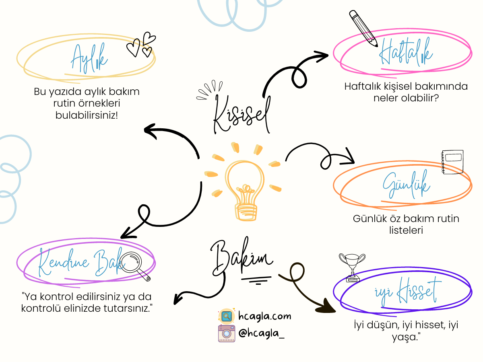 Aylık
Bu yazıda aylık bakım
rutin örnekleri
bulabilirsiniz!
Haftalık
Haftalık kişisel bakımında
neler olabilir?
Kişisel
Günlük
Günlük öz bakım rutin
listeleri
Kendine Bak
"Ya kontrol edilirsiniz ya da
kontrolü elinizde tutarsınız."
Bakım
hcagla.com
@hcagla_
iyi Hisset
İyi düşün, iyi hisset, iyi
yaşa."